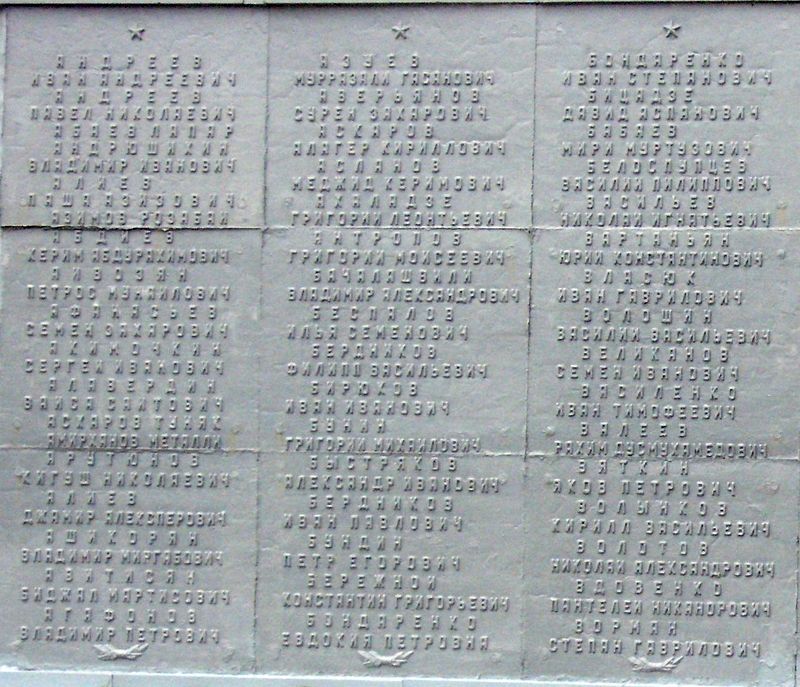 АНДРЕЕВ
ИВАН АНДРЕЕВИЧ
АНДРЕЕВ
ПАВЕЛ НИКОЛАЕВИЧ
АБАЕВ ЛАПАР
АНДРЮШИХИН
ВЛАДИМИР ИВАНОВИЧ
АЛИЕВ
ПАША АЗИЗОВИЧ
АЗИМОВ РОЗАБАЙ
АБДИЕВ
КЕРИМ АБДУРАХИМОВИЧ
АЙВОЗЯН
ПЕТРОС МУНАИЛОВИЧ
АФАНАСЬЕВ
СЕМЕН ЗАХАРОВИЧ
АКИМОЧКИН
СЕРГЕЙ ИВАНОВИЧ
АЛАВЕРДИН
ВАЙСА САИТОВИЧ
АСХАРОВ ТУНЯК
АМИРХАНОВ МЕТАЛЛИ
АРУТЮНОВ
КИГУШ НИКОЛАЕВИЧ
АЛИЕВ
ДЖАМИР АЛЕКСПЕРОВИЧ
АШИКОРЯН
ВЛАДИМИР МИРГАБОВИЧ
АВИТИСЯН
БИДЖАЛ МАРТИСОВИЧ
АГАФОНОВ
ВЛАДИМИР ПЕТРОВИЧ
АЗУЕВ
МУРРАЗАЛИ ГАСАНОВИЧ
АВЕРЬЯНОВ
СУРЕН ЗАХАРОВИЧ
АСКАРОВ
АЛАГЕР КИРИЛЛОВИЧ
АСЛАНОВ
МЕДЖИД КЕРИМОВИЧ
АХАЛАДЗЕ
ГРИГОРИЙ ЛЕОНТЬЕВИЧ
АНТРОПОВ
ГРИГОРИЙ МОИСЕЕВИЧ
БАЧАЛАШВИЛИ
ВЛАДИМИР АЛЕКСАНДРОВИЧ
БЕСПАЛОВ
ИЛЬЯ СЕМЕНОВИЧ
БЕРДНИКОВ
ФИЛИПП ВАСИЛЬЕВИЧ
БИРЮКОВ
ИВАН ИВАНОВИЧ
БУНИН
ГРИГОРИЙ МИХАЙЛОВИЧ
БЫСТРЯКОВ
АЛЕКСАНДР ИВАНОВИЧ
БЕРДНИКОВ
ИВАН ПАВЛОВИЧ
БУНДИН
ПЕТР ЕГОРОВИЧ
БЕРЕЖНОЙ
КОНСТАНТИН ГРИГОРЬЕВИЧ
БОНДАРЕНКО
ЕВДОКИЯ ПЕТРОВНА
БОНДАРЕНКО
ИВАН СТЕПАНОВИЧ
БИЦАДЗЕ
ДАВИД АСПАНОВИЧ
БАБАЕВ
МИРИ МУРТУЗОВИЧ
БЕЛОСЛУПЦЕВ
ВАСИЛИЙ ПИЛИППОВИЧ
ВАСИЛЬЕВ
НИКОЛАЙ ИГНАТЬЕВИЧ
ВАРТАНЬЯН
ЮРИЙ КОНСТАНТИНОВИЧ
ВЛАСЮК
ИВАН ГАВРИЛОВИЧ
ВОЛОШИН
ВАСИЛИЙ ВАСИЛЬЕВИЧ
ВЕЛИКАНОВ
СЕМЕН ИВАНОВИЧ
ВАСИЛЕНКО
ИВАН ТИМОФЕЕВИЧ
ВАЛЕЕВ
РАХИМ ДУСМУХАМЕДОВИЧ
ВЯТКИН
ЯКОВ ПЕТРОВИЧ
ВОЛЫНКОВ
КИРИЛЛ ВАСИЛЬЕВИЧ
ВОЛОТОВ
НИКОЛАЙ АЛЕКСАНДРОВИЧ
ВДОВЕНКО
ПАНТЕЛЕЙ НИКАНОРОВИЧ
ВОРМАН
СТЕПАН ГАВРИЛОВИЧ